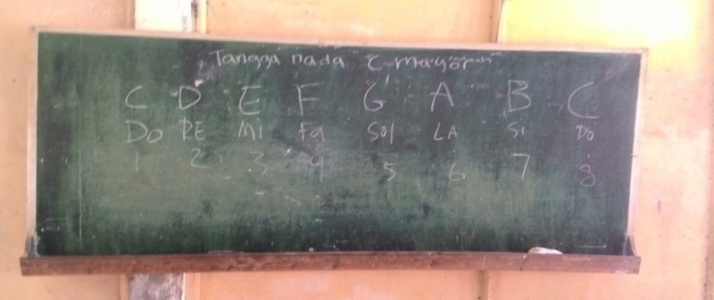 Tangga nada C mayor
C D E F G A B C
Do RE Mi Fa Sol LA Si Do
1 2 3 4 5 6 7 8